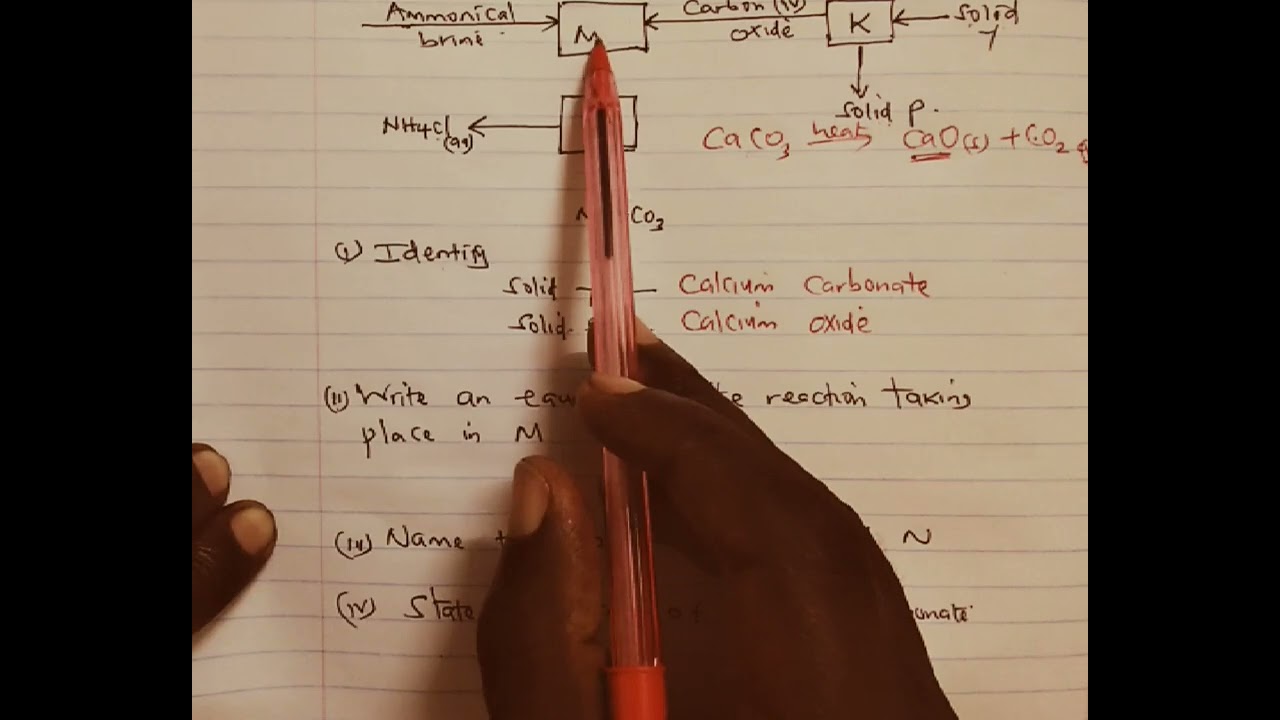 Ammonical Carbon (iv) solid
brine M oxide K Y
solid P.
NH4Cl(aq) CaCO3 heat CaO(s) + CO2
CO3
(i) Identify
solid — Calcium Carbonate
solid — Calcium oxide
(ii) Write an reaction taking
place in M
(iii) Name N
(iv) State of